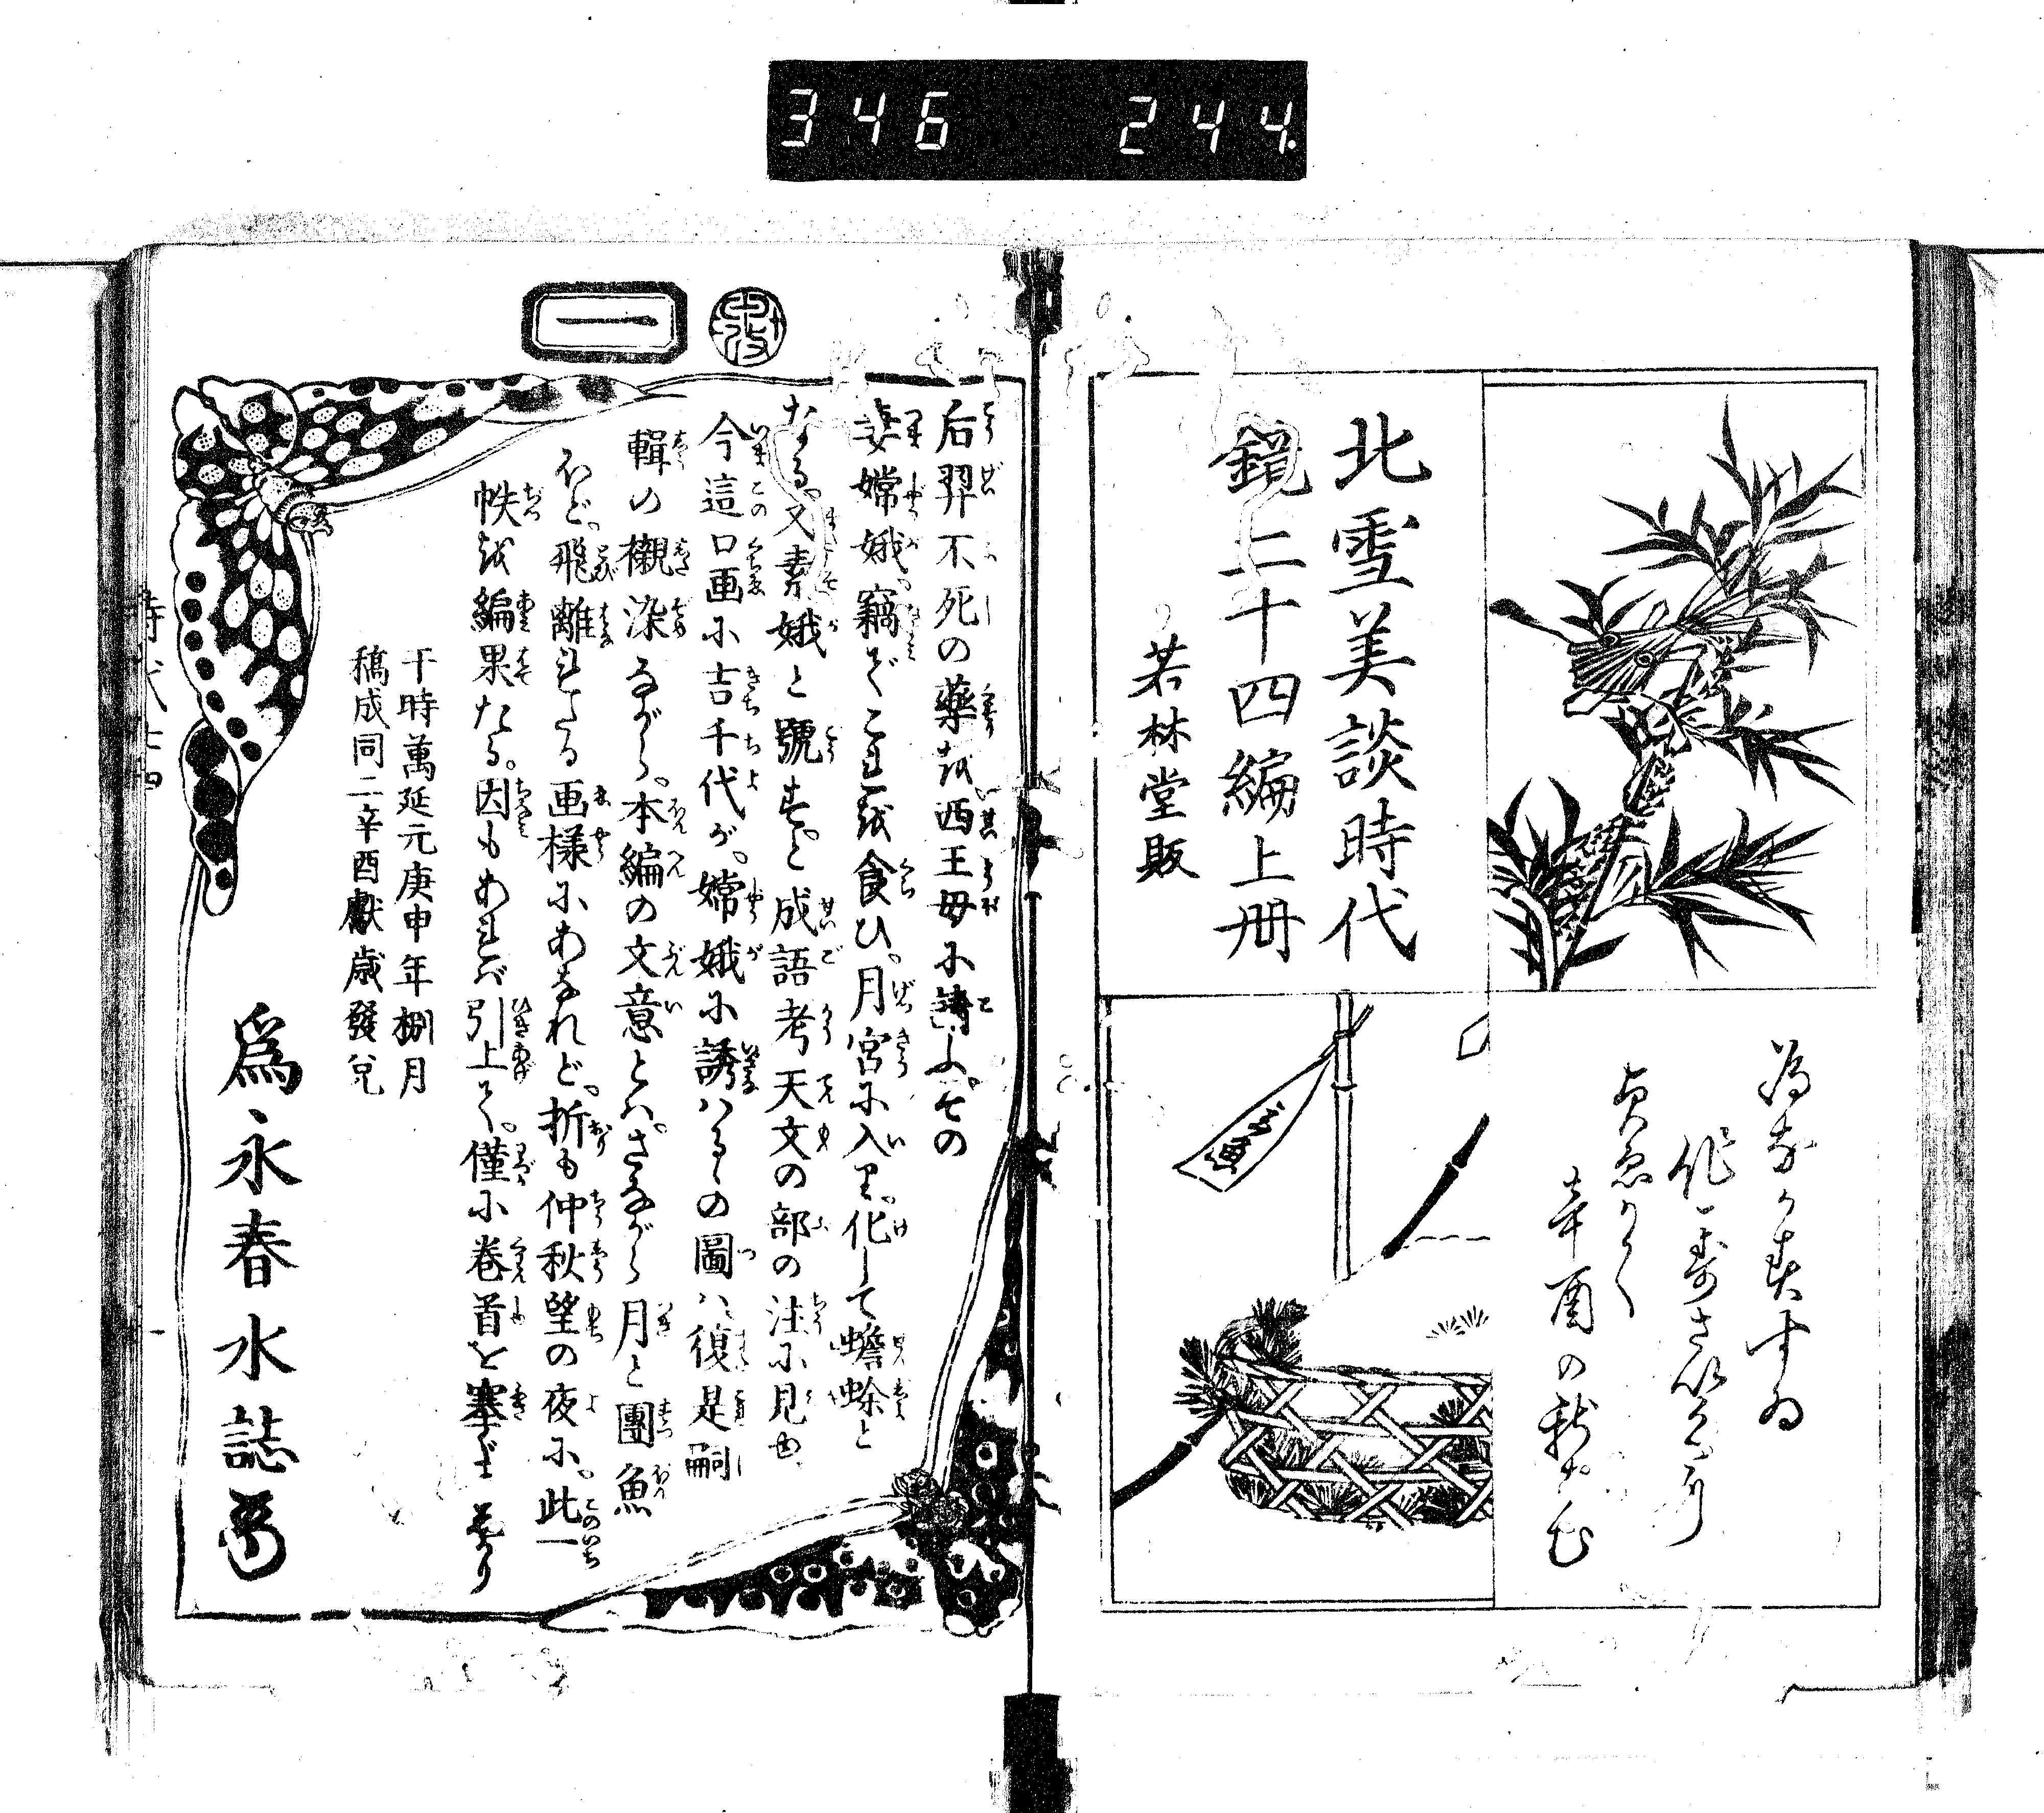 346 244
北雪美談時代
鏡二十四編上冊
若林堂販
為永春すゐ
作一寿さい
貞急ゑかく
辛酉の秋
一
后羿不死の藥を西王母に請ふ。その
妻嫦娥。竊でこれを食ひ。月宮に入り。化して蟾蜍と
なる。又素娥と號すと。成語考天文の部の注に見ゆ
今這口画に吉千代が。嫦娥に誘はるゝの圖は復是嗣
輯の襯染ながら。本編の文意とハ。さながら月と團魚
ほど。飛離れたる画様にあなれど。折も仲秋望の夜に。此一
帙を編果たる。因もあれば引上て。僅に巻首を塞ぎぬ
干時萬延元庚申年捌月
稿成同二辛酉獻歳發兌
爲永春水誌
時代廿四